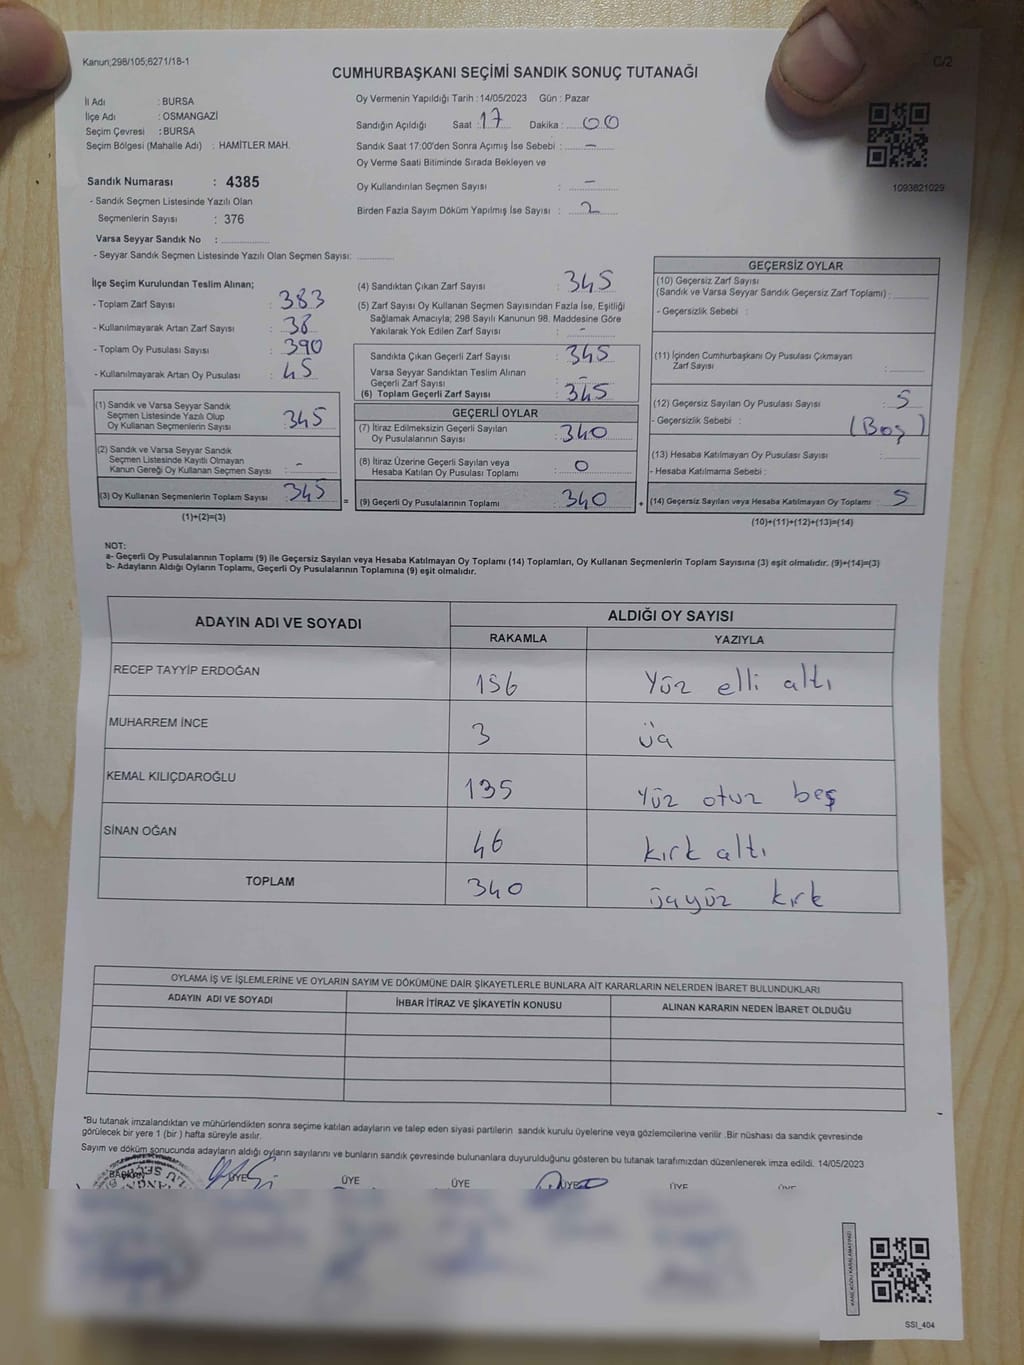 Kanun;298/105;6271/18-1
C/2
CUMHURBAŞKANI SEÇİMİ SANDIK SONUÇ TUTANAĞI
İl Adı : BURSA
İlçe Adı : OSMANGAZİ
Seçim Çevresi : BURSA
Seçim Bölgesi (Mahalle Adı) : HAMİTLER MAH.
Sandık Numarası : 4385
- Sandık Seçmen Listesinde Yazılı Olan
Seçmenlerin Sayısı : 376
Varsa Seyyar Sandık No : ................
- Seyyar Sandık Seçmen Listesinde Yazılı Olan Seçmen Sayısı: ............
Oy Vermenin Yapıldığı Tarih : 14/05/2023 Gün : Pazar
Sandığın Açıldığı Saat : 17 Dakika : 00
Sandık Saat 17:00'den Sonra Açımış İse Sebebi : -
Oy Verme Saati Bitiminde Sırada Bekleyen ve
Oy Kullandırılan Seçmen Sayısı : -
Birden Fazla Sayım Döküm Yapılmış İse Sayısı : 2
1093821029
İlçe Seçim Kurulundan Teslim Alınan;
- Toplam Zarf Sayısı : 383
- Kullanılmayarak Artan Zarf Sayısı : 38
- Toplam Oy Pusulası Sayısı : 390
- Kullanılmayarak Artan Oy Pusulası : 45
(1) Sandık ve Varsa Seyyar Sandık
Seçmen Listesinde Yazılı Olup
Oy Kullanan Seçmenlerin Sayısı : 345
(2) Sandık ve Varsa Seyyar Sandık
Seçmen Listesinde Kayıtlı Olmayan
Kanun Gereği Oy Kullanan Seçmen Sayısı : -
(3) Oy Kullanan Seçmenlerin Toplam Sayısı : 345
(1)+(2)=(3)
(4) Sandıktan Çıkan Zarf Sayısı : 345
(5) Zarf Sayısı Oy Kullanan Seçmen Sayısından Fazla İse, Eşitliği
Sağlamak Amacıyla; 298 Sayılı Kanunun 98. Maddesine Göre
Yakılarak Yok Edilen Zarf Sayısı : -
Sandıkta Çıkan Geçerli Zarf Sayısı : 345
Varsa Seyyar Sandıktan Teslim Alınan
Geçerli Zarf Sayısı : -
(6) Toplam Geçerli Zarf Sayısı : 345
GEÇERLİ OYLAR
(7) İtiraz Edilmeksizin Geçerli Sayılan
Oy Pusulalarının Sayısı : 340
(8) İtiraz Üzerine Geçerli Sayılan veya
Hesaba Katılan Oy Pusulası Toplamı : 0
= (9) Geçerli Oy Pusulalarının Toplamı : 340 +
GEÇERSİZ OYLAR
(10) Geçersiz Zarf Sayısı
(Sandık ve Varsa Seyyar Sandık Geçersiz Zarf Toplamı) : ............
- Geçersizlik Sebebi :
(11) İçinden Cumhurbaşkanı Oy Pusulası Çıkmayan
Zarf Sayısı : ............
(12) Geçersiz Sayılan Oy Pusulası Sayısı : 5
- Geçersizlik Sebebi : (Boş)
(13) Hesaba Katılmayan Oy Pusulası Sayısı : ............
- Hesaba Katılmama Sebebi :
(14) Geçersiz Sayılan veya Hesaba Katılmayan Oy Toplamı : 5
(10)+(11)+(12)+(13)=(14)
NOT:
a- Geçerli Oy Pusulalarının Toplamı (9) ile Geçersiz Sayılan veya Hesaba Katılmayan Oy Toplamı (14) Toplamları, Oy Kullanan Seçmenlerin Toplam Sayısına (3) eşit olmalıdır. (9)+(14)=(3)
b- Adayların Aldığı Oyların Toplamı, Geçerli Oy Pusulalarının Toplamına (9) eşit olmalıdır.
ADAYIN ADI VE SOYADI
ALDIĞI OY SAYISI
RAKAMLA YAZIYLA
RECEP TAYYİP ERDOĞAN 156 Yüz elli altı
MUHARREM İNCE 3 üç
KEMAL KILIÇDAROĞLU 135 Yüz otuz beş
SİNAN OĞAN 46 kırk altı
TOPLAM 340 üçyüz kırk
OYLAMA İŞ VE İŞLEMLERİNE VE OYLARIN SAYIM VE DÖKÜMÜNE DAİR ŞİKAYETLERLE BUNLARA AİT KARARLARIN NELERDEN İBARET BULUNDUKLARI
ADAYIN ADI VE SOYADI İHBAR İTİRAZ VE ŞİKAYETİN KONUSU ALINAN KARARIN NEDEN İBARET OLDUĞU
"Bu tutanak imzalandıktan ve mühürlendikten sonra seçime katılan adayların ve talep eden siyasi partilerin sandık kurulu üyelerine veya gözlemcilerine verilir .Bir nüshası da sandık çevresinde
görülecek bir yere 1 (bir ) hafta süreyle asılır.
Sayım ve döküm sonucunda adayların aldığı oyların sayılarını ve bunların sandık çevresinde bulunanlara duyurulduğunu gösteren bu tutanak tarafımızdan düzenlenerek imza edildi. 14/05/2023
BAŞKAN ÜYE ÜYE ÜYE ÜYE ÜYE ÜYE
SSI_404